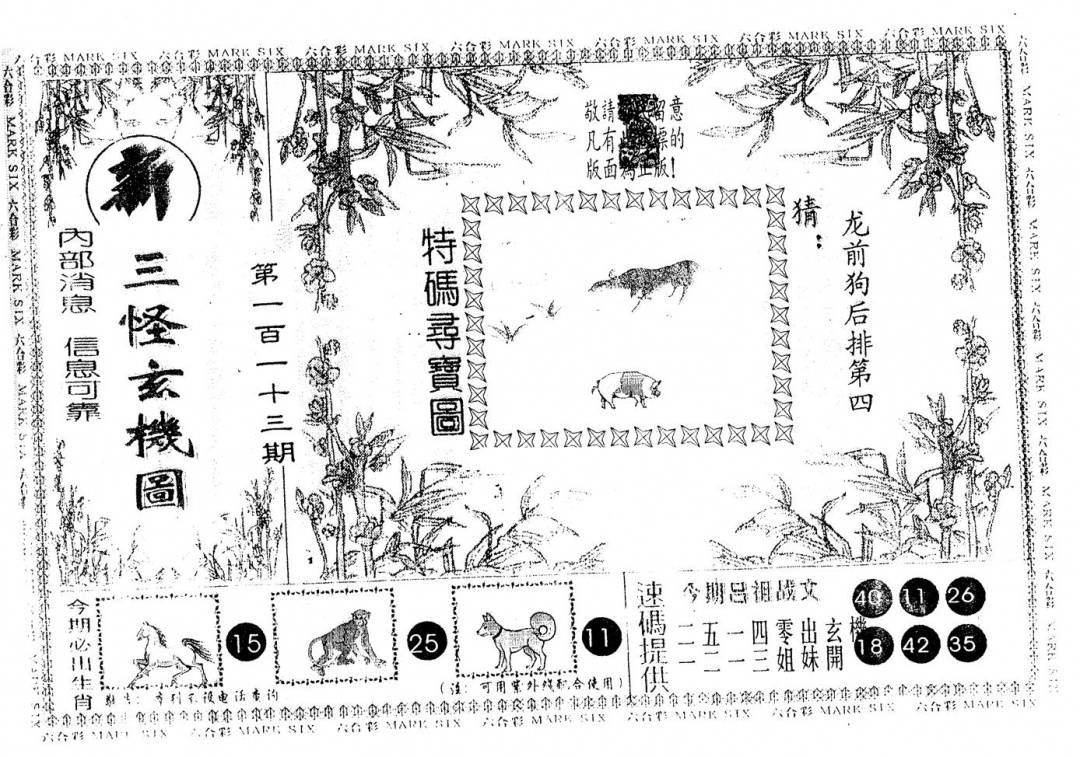 六合彩 MARK SIX 六合彩 MARK SIX 六合彩 MARK SIX 六合彩 MARK SIX 六合彩 MARK SIX 六合彩 MARK SIX 六合彩 MARK SIX
新
三怪玄機圖
內部消息 信息可靠
第一百一十三期
敬請 留意
凡有 標的
版面為正版!
特碼尋寶圖
猜:
龙前狗后排第四
今期必出生肖
15
25
11
(注: 可用紫外线配合使用)
速碼提供
今期吕祖战文
二五一四零出玄機
一二一三姐妹開
40 11 26
18 42 35
六合彩 MARK SIX 六合彩 MARK SIX 六合彩 MARK SIX 六合彩 MARK SIX 六合彩 MARK SIX 六合彩 MARK SIX 六合彩 MARK SIX